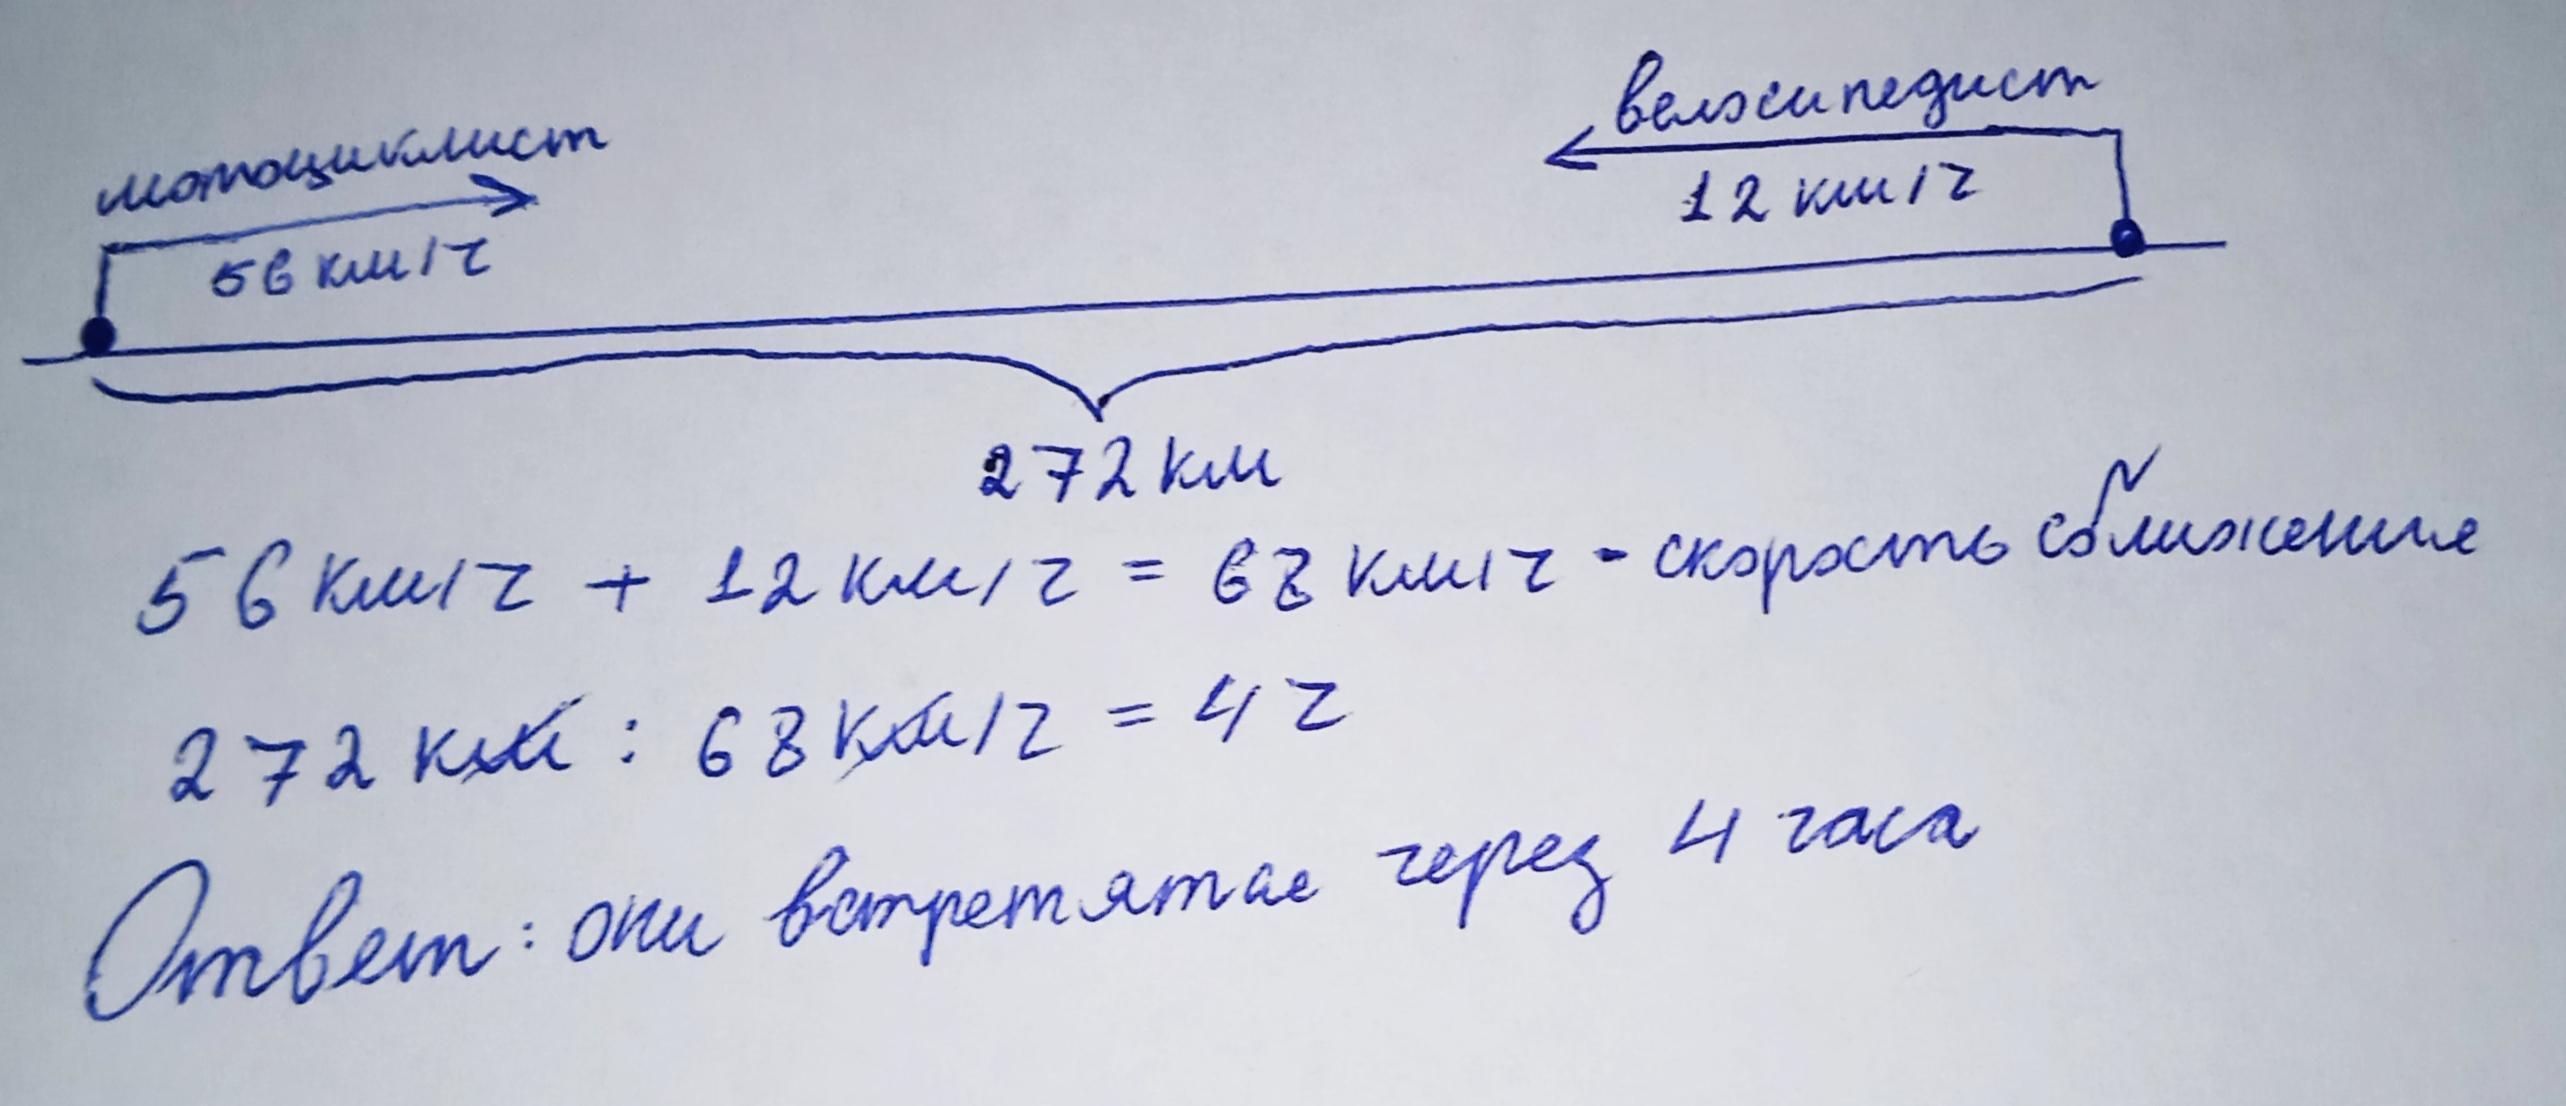 мотоциклист
56 км/ч
велосипедист
12 км/ч
272 км
56 км/ч + 12 км/ч = 68 км/ч - скорость сближение
272 км : 68 км/ч = 4 ч
Ответ: они встретятся через 4 часа